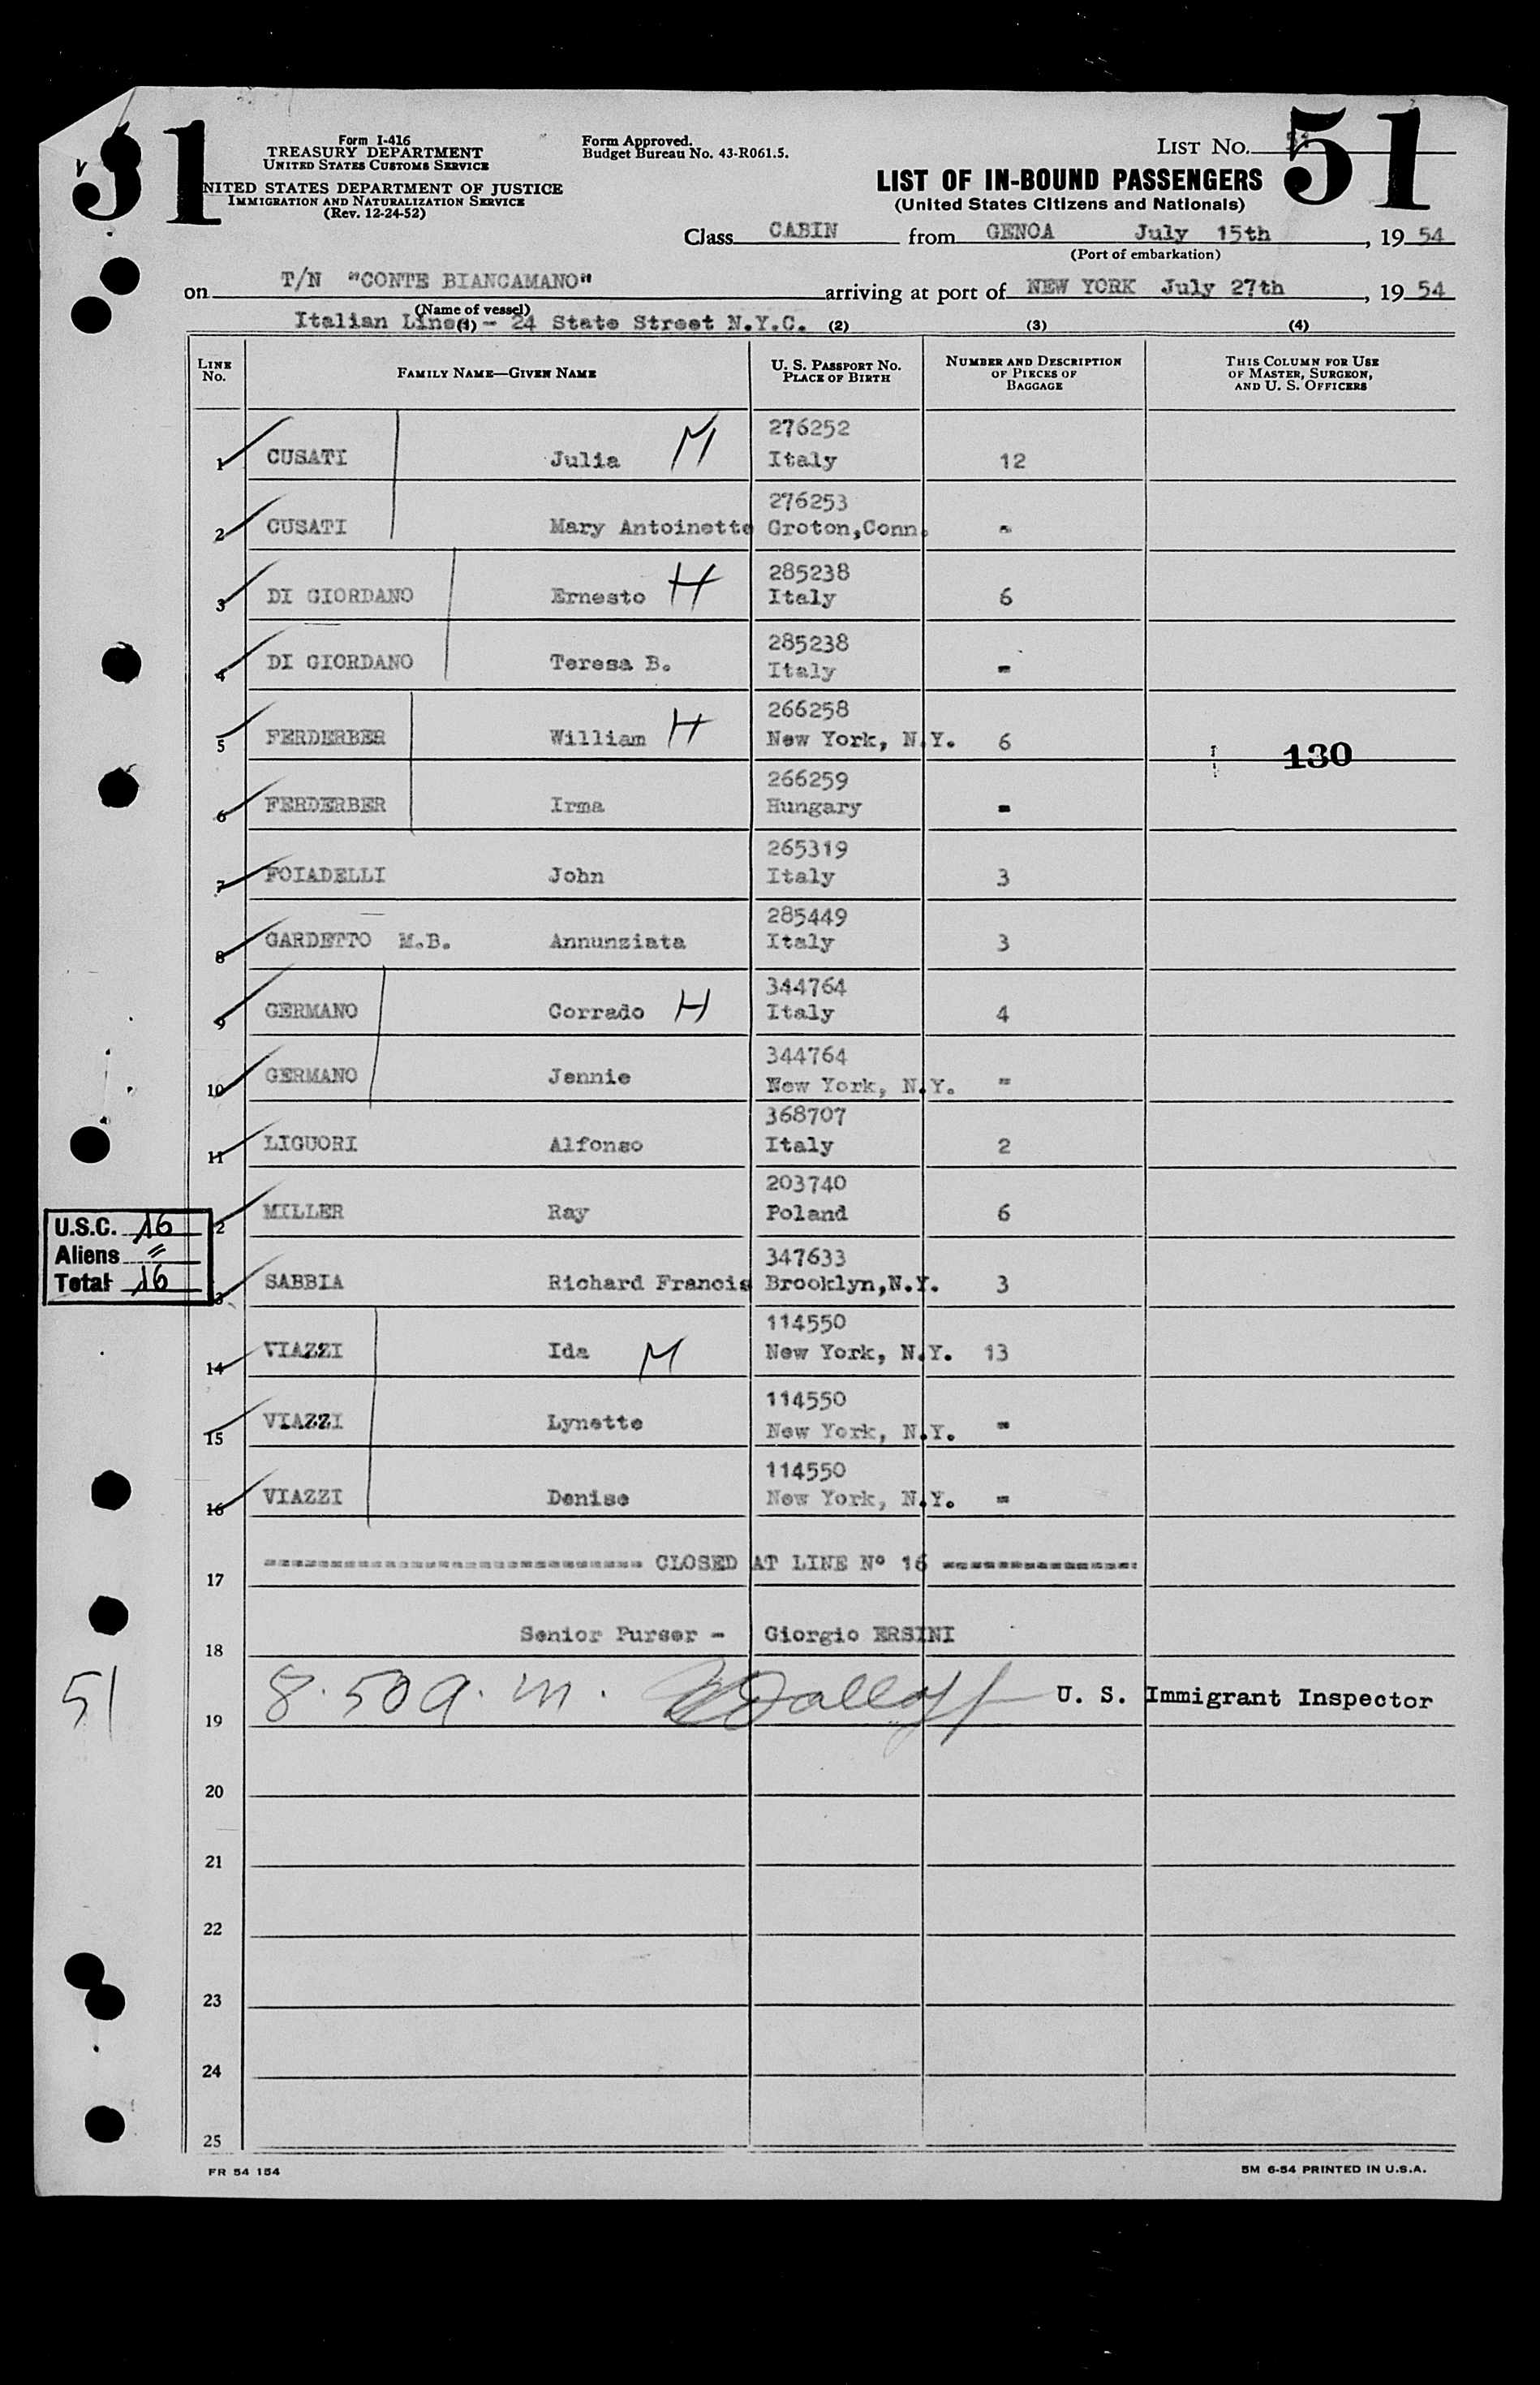 51
51
Form I-416
TREASURY DEPARTMENT
UNITED STATES CUSTOMS SERVICE
UNITED STATES DEPARTMENT OF JUSTICE
IMMIGRATION AND NATURALIZATION SERVICE
(Rev. 12-24-52)
Form Approved.
Budget Bureau No. 43-R061.5.
LIST NO.
LIST OF IN-BOUND PASSENGERS
(United States Citizens and Nationals)
Class CABIN from GENOA July 15th, 19 54
(Port of embarkation)
on T/N "CONTE BIANCAMANO" arriving at port of NEW YORK July 27th, 19 54
(Name of vessel)
Italian Line - 24 State Street N.Y.C.
(1) (2) (3) (4)
LINE No. FAMILY NAME—GIVEN NAME U. S. PASSPORT NO. PLACE OF BIRTH NUMBER AND DESCRIPTION OF PIECES OF BAGGAGE THIS COLUMN FOR USE OF MASTER, SURGEON, AND U. S. OFFICERS
276252
1 CUSATI Julia M Italy 12
276253
2 CUSATI Mary Antoinette Groton,Conn. -
285238
3 DI GIORDANO Ernesto H Italy 6
285238
4 DI GIORDANO Teresa B. Italy -
266258
5 FERDERBER William H New York, N.Y. 6
130
266259
6 FERDERBER Irma Hungary -
265319
7 FOIADELLI John Italy 3
285449
8 GARDETTO M.B. Annunziata Italy 3
344764
9 GERMANO Corrado H Italy 4
344764
10 GERMANO Jennie New York, N.Y. -
368707
11 LIGUORI Alfonso Italy 2
203740
12 MILLER Ray Poland 6
U.S.C. 16
Aliens =
Total 16
347633
13 SABBIA Richard Francis Brooklyn,N.Y. 3
114550
14 VIAZZI Ida M New York, N.Y. 13
114550
15 VIAZZI Lynette New York, N.Y. -
114550
16 VIAZZI Denise New York, N.Y. -
17 ---------------------------- CLOSED AT LINE Nº 16 ---------------
18 Senior Purser - Giorgio ERSINI
51
19 8.50 a.m. U. S. Immigrant Inspector
20
21
22
23
24
25
FR 54 154
5M 6-54 PRINTED IN U.S.A.